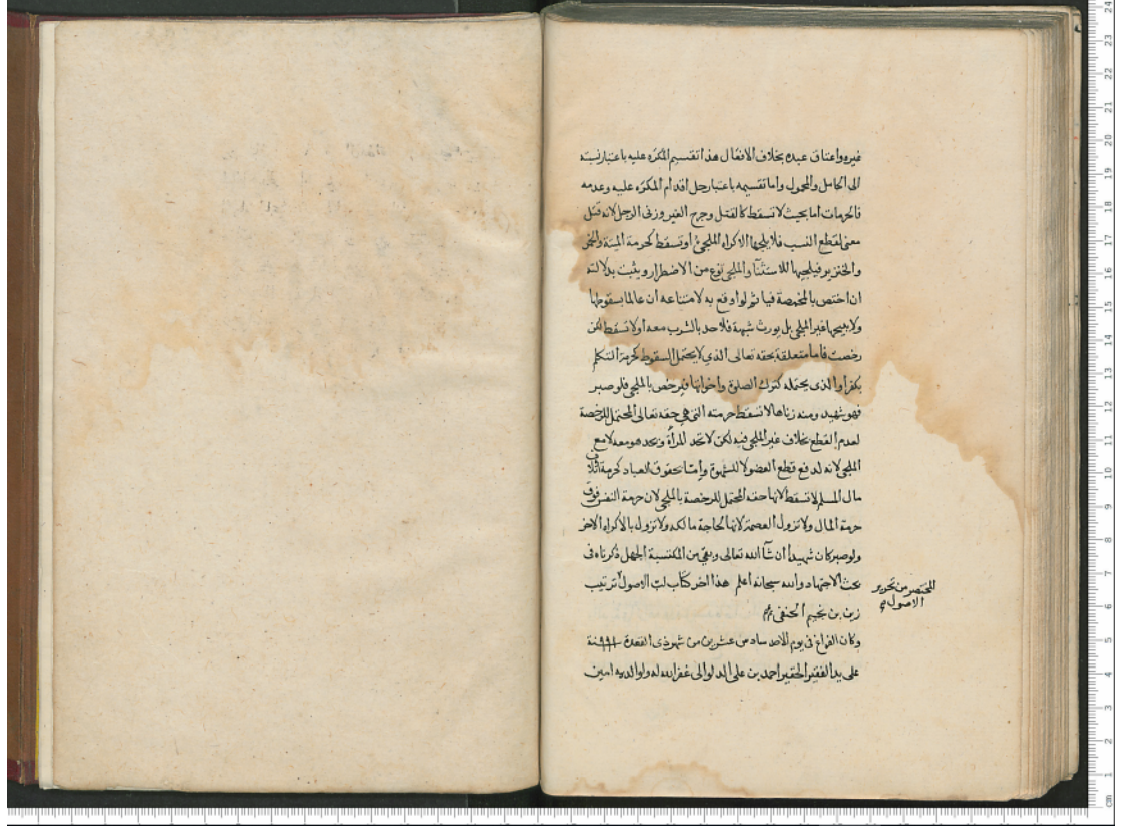 غيره واعتاق عبده بخلاف الافعال هذا تقسيم المكره عليه باعتبار نسبته
الى الحامل والمحمول واما تقسيمه باعتبار حل اقدام المكره عليه وعدمه
فالحرمات اما بحيث لا تسقط كالقتل وجرح الغير وزنى الرجل لانه قتل
معنى لقطع النسب فلا يحلها الاكراه الملجئ او تسقط كحرمة الميتة والخمر
والخنزير فيبيحها للاستثنا والملجئ نوع من الاضطرار ويثبت بدلالته
ان اختص بالمخمصة فياثم لو اوقع به لامتناعه ان عالما بسقوطها
ولا يبيحها غير الملجئ بل يورث شبهة فلا حد بالشرب معه او لا تسقط لكن
رخصت فاما متعلقة بحقه تعالى الذي لا يحتمل السقوط كحرمة التكلم
بكفر او الذي يحتمله كترك الصلوة واخواتها فيرخص بالملجئ فلو صبر
فهو شهيد ومنه زناها لا تسقط حرمته التي هي حقه تعالى المحتمل للرخصة
لعدم القطع بخلاف غير الملجئ فيه لكن لا تحد المرأة ويحد هو معه لا مع
الملجئ لانه لدفع قطع العضو لا للشهوة واما بحقوق العباد كحرمة اتلاف
مال المسلم لا تسقط لانها حقه المحتمل للرخصة بالملجئ لان حرمة النفس فوق
حرمة المال ولا تزول العصمة لانها لحاجة مالكه ولا تزول بالاكراه الاخر
ولو صبر كان شهيدا ان شآ الله تعالى وبقي من المكتسبة الجهل ذكرناه في
بحث الاجتهاد والله سبحانه اعلم هذا اخر كتاب لب الاصول ترتيب
المختصر من تحرير
الاصول
زين بن نجيم الحنفي
وكان الفراغ في يوم الاحد سادس عشرين من شهر ذي القعدة ٩٩١ سنة
على يد الفقير الحقير احمد بن علي غفر الله له ولوالديه امين